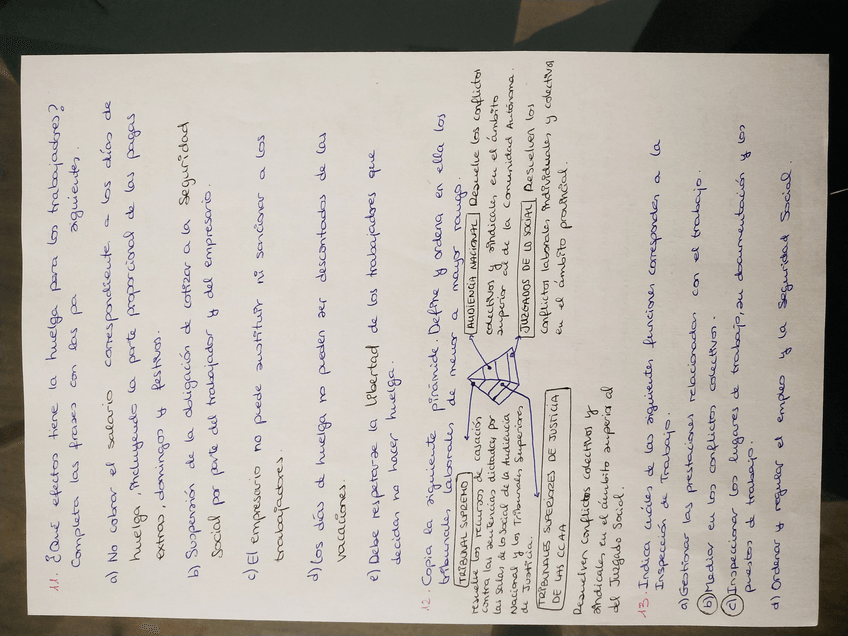 11. ¿Qué efectos tiene la huelga para los trabajadores?
Completa las frases con las pa siguientes.
a) No cobrar el salario correspondiente a los días de
huelga, incluyendo la parte proporcional de las pagas
extras, domingos y festivos.
b) Suspensión de la obligación de cotizar a la Seguridad
Social por parte del trabajador y del empresario.
c) El empresario no puede sustituir ni sancionar a los
trabajadores.
d) Los días de huelga no pueden ser descontados de las
vacaciones.
e) Debe respetarse la libertad de los trabajadores que
decidan no hacer huelga.
12. Copia la siguiente pirámide. Define y ordena en ella los
tribunales laborales de menor a mayor rango.
TRIBUNAL SUPREMO
resuelve los recursos de casación
contra las sentencias dictadas por
las salas de lo Social de la Audiencia
Nacional y los Tribunales Superiores
de Justicia.
AUDIENCIA NACIONAL Resuelve los conflictos
colectivos y sindicales en el ámbito
superior al de la Comunidad Autónoma.
JUZGADOS DE LO SOCIAL Resuelven los
conflictos laborales individuales y colectivos
en el ámbito provincial.
TRIBUNALES SUPERIORES DE JUSTICIA
DE LAS CCAA
Resuelven conflictos colectivos y
sindicales en el ámbito superior al
del Juzgado Social.
13. Indica cuáles de las siguientes funciones corresponden a la
Inspección de Trabajo.
a) Gestionar las prestaciones relacionadas con el trabajo.
b) Mediar en los conflictos colectivos.
c) Inspeccionar los lugares de trabajo, su documentación y los
puestos de trabajo.
d) Ordenar y regular el empleo y la Seguridad Social.